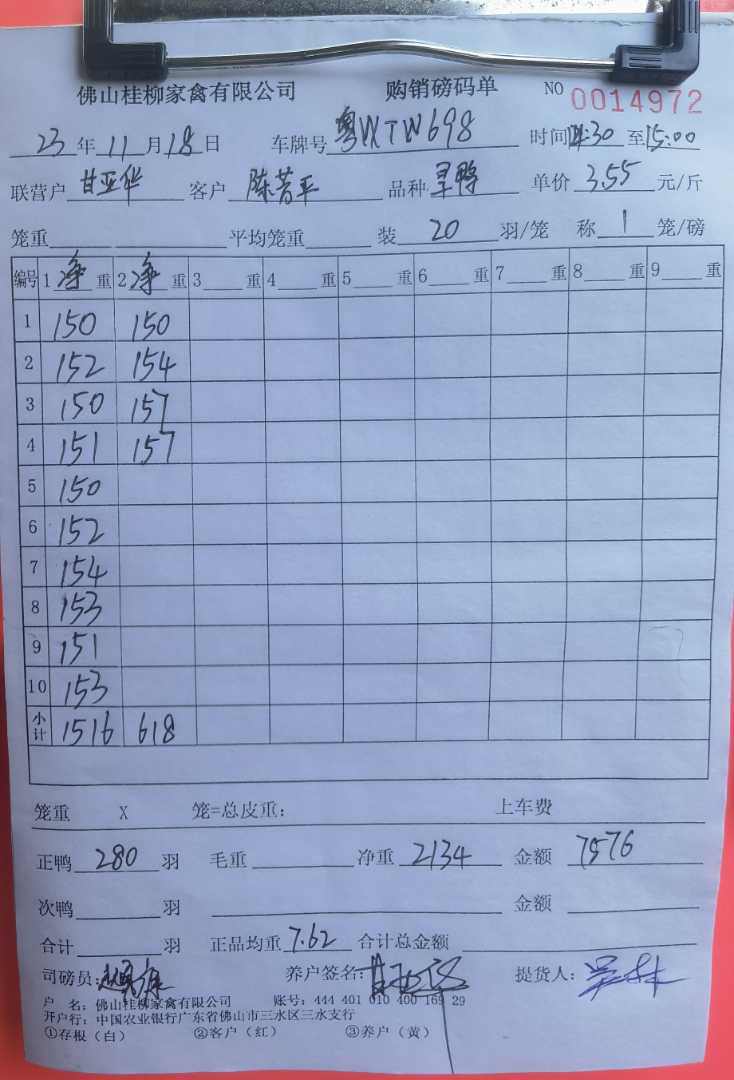 佛山桂柳家禽有限公司 购销磅码单 NO 0014972
23年11月18日 车牌号粤WTW698 时间14:30至15:00
联营户甘亚华 客户陈芳平 品种 单价3.55元/斤
笼重 平均笼重 装20羽/笼 称1笼/磅
编号 1净重 2净重 3重 4重 5重 6重 7重 8重 9重
1 150 150
2 152 154
3 150 157
4 151 157
5 150
6 152
7 154
8 153
9 151
10 153
小计 1516 618
笼重 X 笼=总皮重: 上车费
正鸭280羽 毛重 净重2134 金额7576
次鸭 羽 金额
合计 羽 正品均重7.62 合计总金额
司磅员: 养户签名:甘亚华 提货人:吴林
户 名: 佛山桂柳家禽有限公司 账号: 444 401 010 400 169 29
开户行: 中国农业银行广东省佛山市三水区三水支行
①存根(白) ②客户(红) ③养户(黄)